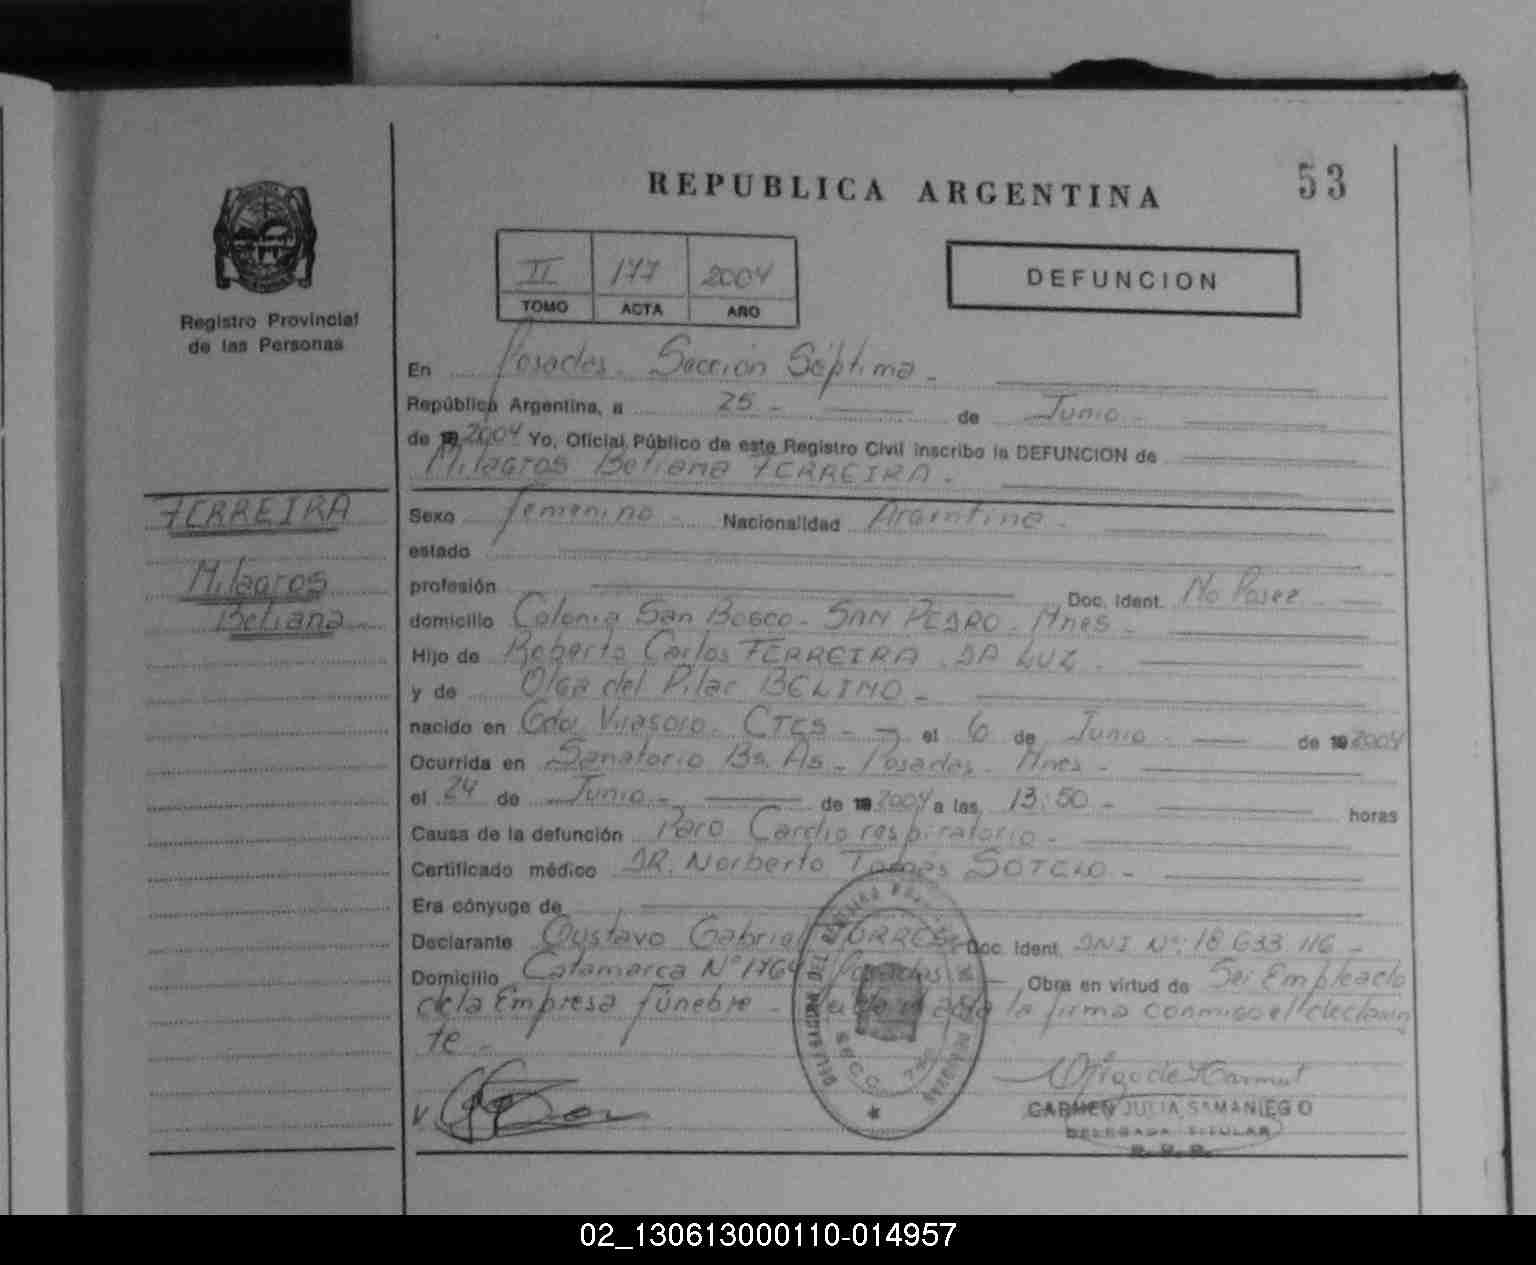 REPUBLICA ARGENTINA
53
II 177 2004
TOMO ACTA AÑO
DEFUNCION
Registro Provincial
de las Personas
En Posadas - Sección Séptima -
República Argentina, a 25 - de Junio -
de 19 2004 Yo, Oficial Público de este Registro Civil inscribo la DEFUNCION de
Milagros Betiana FERREIRA -
FERREIRA
Milagros
Betiana
Sexo femenino - Nacionalidad Argentina -
estado
profesión Doc. Ident. No Posee
domicilio Colonia San Bosco - SAN PEDRO - Mnes -
Hijo de Roberto Carlos FERREIRA DA LUZ -
y de Olga del Pilar BELINO -
nacido en Gdor Virasoro - CTES - el 6 de Junio - de 19 2004
Ocurrida en Sanatorio Bs. As - Posadas - Mnes -
el 24 de Junio - de 19 2004 a las 13:50 - horas
Causa de la defunción Paro Cardio respiratorio -
Certificado médico DR. Norberto Tomás SOTELO -
Era cónyuge de
Declarante Gustavo Gabriel TORRES Doc. Ident. DNI Nº: 18.633.116 -
Domicilio Catamarca Nº 1764 Posadas - Obra en virtud de Ser Empleado
de la Empresa fúnebre - Leida el acta la firma conmigo el declaran
te -
CARMEN JULIA SAMANIEGO
DELEGADA TITULAR
R. P. P.
02_130613000110-014957